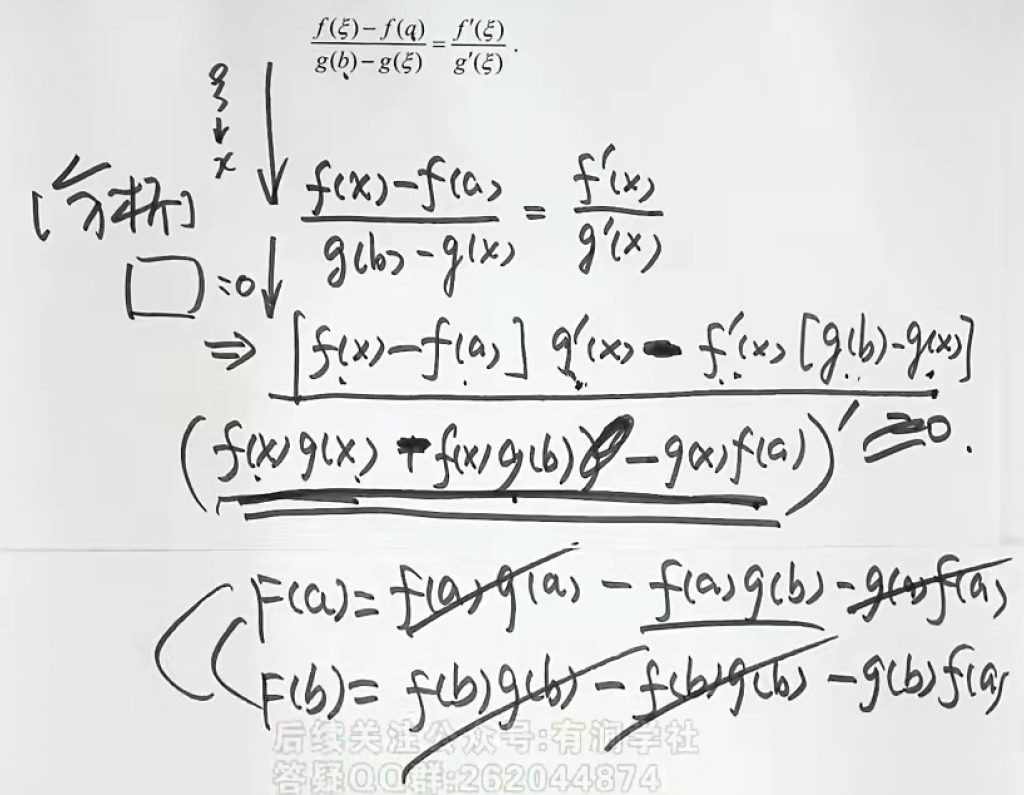 f(ξ)-f(a)/g(b)-g(ξ) = f'(ξ)/g'(ξ).
ξ↓x
[分析] f(x)-f(a)/g(b)-g(x) = f'(x)/g'(x)
□=0
⇒ [f(x)-f(a)] g'(x) - f'(x) [g(b)-g(x)]
(f(x)g(x) - f(x)g(b) - g(x)f(a))' = 0.
F(a)= f(a)g(a) - f(a)g(b) - g(a)f(a)
F(b)= f(b)g(b) - f(b)g(b) - g(b)f(a)
后续关注公众号:有润学社
答疑QQ群:262044874